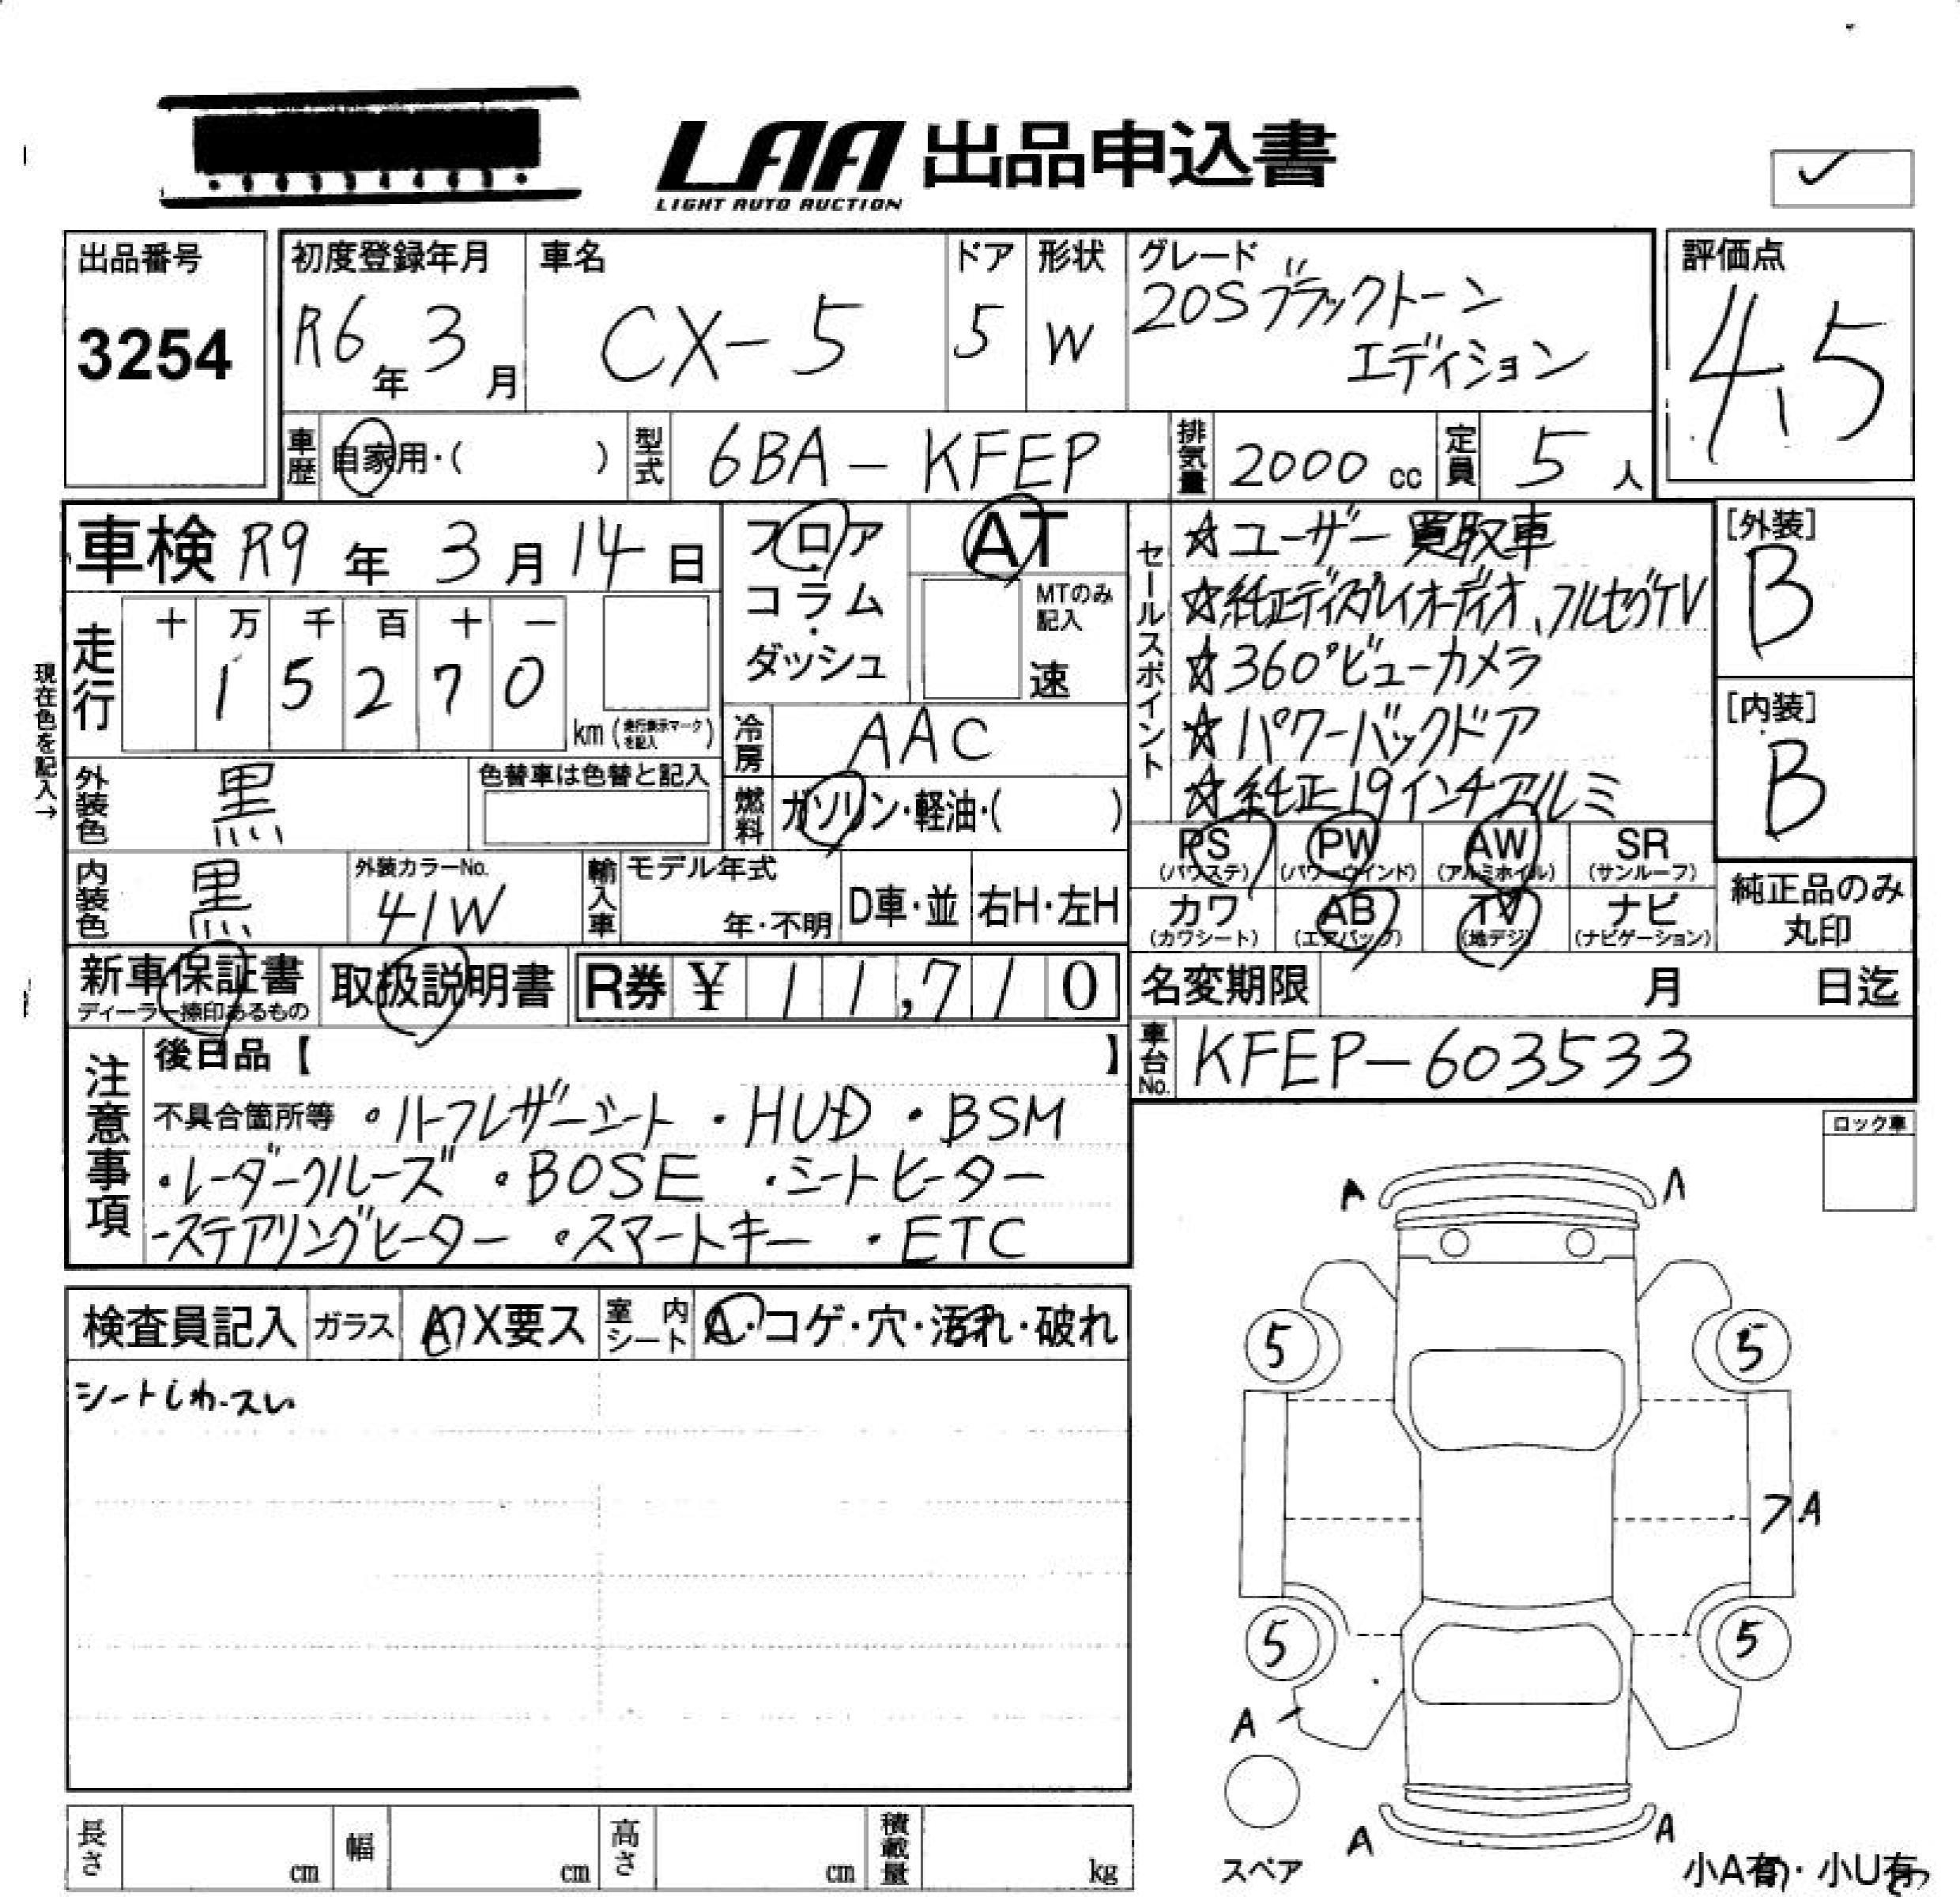 LAA 出品申込書
LIGHT AUTO AUCTION
出品番号
3254
初度登録年月
R6年3月
車名
CX-5
ドア
5
形状
W
グレード
20Sブラックトーン
エディション
評価点
4.5
車歴 自家用・( )
型式 6BA-KFEP
排気量 2000cc
定員 5人
車検 R9年3月14日
フロア
コラム
・
ダッシュ
AT
MTのみ
記入
速
セールスポイント
☆ユーザー買取車
☆純正ディスプレイオーディオ、フルセグTV
☆360°ビューカメラ
☆パワーバックドア
☆純正19インチアルミ
[外装]
B
[内装]
B
現在色を記入→
走行
十 万 千 百 十 一
1 5 2 7 0
km(走行表示マークを記入)
冷房 AAC
外装色 黒
色替車は色替と記入
燃料 ガソリン・軽油・( )
内装色 黒
外装カラーNo.
41W
輸入車
モデル年式
年・不明
D車・並
右H・左H
PS PW AW SR
(パワステ) (パワーウインド) (アルミホイル) (サンルーフ)
カワ AB TV ナビ
(カワシート) (エアバッグ) (地デジ) (ナビゲーション)
純正品のみ
丸印
新車保証書
ディーラー捺印あるもの
取扱説明書
R券 ¥ 11,710
名変期限 月 日迄
車台No. KFEP-603533
注意事項
後日品【 】
不具合箇所等 ・ハーフレザーシート ・HUD ・BSM
・レーダークルーズ ・BOSE ・シートヒーター
・ステアリングヒーター ・スマートキー ・ETC
ロック車
検査員記入 ガラス A X要ス 室内シート A・コゲ・穴・汚れ・破れ
シートしわ・スレ
A A
5 5
A
5 5
A
A A
スペア
小A有・小U有
長さ cm 幅 cm 高さ cm 積載量 kg